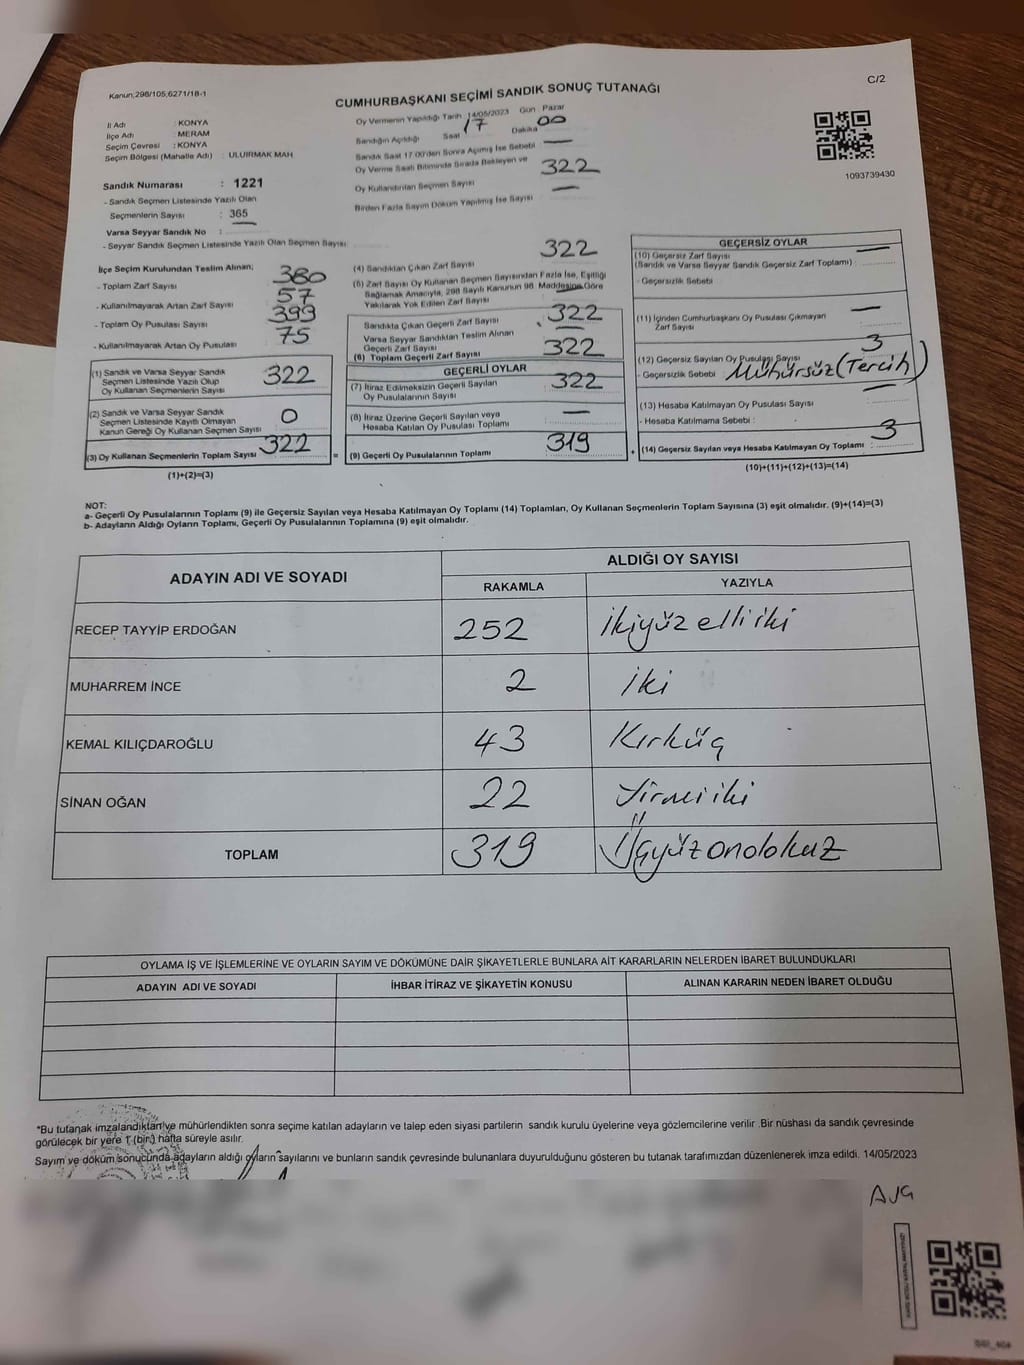 Kanun;298/105;6271/18-1
C/2
CUMHURBAŞKANI SEÇİMİ SANDIK SONUÇ TUTANAĞI
İl Adı : KONYA
İlçe Adı : MERAM
Seçim Çevresi : KONYA
Seçim Bölgesi (Mahalle Adı) : ULUIRMAK MAH
Sandık Numarası : 1221
- Sandık Seçmen Listesinde Yazılı Olan
Seçmenlerin Sayısı : 365
Varsa Seyyar Sandık No : —
- Seyyar Sandık Seçmen Listesinde Yazılı Olan Seçmen Sayısı:
Oy Vermenin Yapıldığı Tarih :14/05/2023 Gün : Pazar
Sandığın Açıldığı Saat 17 Dakika 00
Sandık Saat 17.00'den Sonra Açılmış İse Sebebi —
Oy Verme Saati Bitiminde Sırada Bekleyen ve
Oy Kullandırılan Seçmen Sayısı 322
Birden Fazla Sayım Döküm Yapılmış İse Sayısı —
1093739430
İlçe Seçim Kurulundan Teslim Alınan;
- Toplam Zarf Sayısı 380
- Kullanılmayarak Artan Zarf Sayısı 57
- Toplam Oy Pusulası Sayısı 399
- Kullanılmayarak Artan Oy Pusulası 75
(1) Sandık ve Varsa Seyyar Sandık
Seçmen Listesinde Yazılı Olup
Oy Kullanan Seçmenlerin Sayısı 322
(2) Sandık ve Varsa Seyyar Sandık
Seçmen Listesinde Kayıtlı Olmayan
Kanun Gereği Oy Kullanan Seçmen Sayısı 0
(3) Oy Kullanan Seçmenlerin Toplam Sayısı 322
(1)+(2)=(3)
(4) Sandıktan Çıkan Zarf Sayısı 322
(5) Zarf Sayısı Oy Kullanan Seçmen Sayısından Fazla İse, Eşitliği
Sağlamak Amacıyla, 298 Sayılı Kanunun 98. Maddesine Göre
Yakılarak Yok Edilen Zarf Sayısı —
Sandıkta Çıkan Geçerli Zarf Sayısı 322
Varsa Seyyar Sandıktan Teslim Alınan
Geçerli Zarf Sayısı —
(6) Toplam Geçerli Zarf Sayısı 322
GEÇERLİ OYLAR
(7) İtiraz Edilmeksizin Geçerli Sayılan
Oy Pusulalarının Sayısı 322
(8) İtiraz Üzerine Geçerli Sayılan veya
Hesaba Katılan Oy Pusulası Toplamı —
(9) Geçerli Oy Pusulalarının Toplamı 319
GEÇERSİZ OYLAR
(10) Geçersiz Zarf Sayısı —
(Sandık ve Varsa Seyyar Sandık Geçersiz Zarf Toplamı) :
- Geçersizlik Sebebi
(11) İçinden Cumhurbaşkanı Oy Pusulası Çıkmayan
Zarf Sayısı —
(12) Geçersiz Sayılan Oy Pusulası Sayısı 3
- Geçersizlik Sebebi : Mühürsüz (Tercih)
(13) Hesaba Katılmayan Oy Pusulası Sayısı —
- Hesaba Katılmama Sebebi :
(14) Geçersiz Sayılan veya Hesaba Katılmayan Oy Toplamı : 3
(10)+(11)+(12)+(13)=(14)
NOT:
a- Geçerli Oy Pusulalarının Toplamı (9) ile Geçersiz Sayılan veya Hesaba Katılmayan Oy Toplamı (14) Toplamları, Oy Kullanan Seçmenlerin Toplam Sayısına (3) eşit olmalıdır. (9)+(14)=(3)
b- Adayların Aldığı Oyların Toplamı, Geçerli Oy Pusulalarının Toplamına (9) eşit olmalıdır.
ADAYIN ADI VE SOYADI ALDIĞI OY SAYISI
RAKAMLA YAZIYLA
RECEP TAYYİP ERDOĞAN 252 ikiyüzelliiki
MUHARREM İNCE 2 iki
KEMAL KILIÇDAROĞLU 43 Kırküç
SİNAN OĞAN 22 yirmiiki
TOPLAM 319 Üçyüzondokuz
OYLAMA İŞ VE İŞLEMLERİNE VE OYLARIN SAYIM VE DÖKÜMÜNE DAİR ŞİKAYETLERLE BUNLARA AİT KARARLARIN NELERDEN İBARET BULUNDUKLARI
ADAYIN ADI VE SOYADI İHBAR İTİRAZ VE ŞİKAYETİN KONUSU ALINAN KARARIN NEDEN İBARET OLDUĞU
*Bu tutanak imzalandıktan ve mühürlendikten sonra seçime katılan adayların ve talep eden siyasi partilerin sandık kurulu üyelerine veya gözlemcilerine verilir .Bir nüshası da sandık çevresinde
görülecek bir yere 1 (bir) hafta süreyle asılır.
Sayım ve döküm sonucunda adayların aldığı oyların sayılarını ve bunların sandık çevresinde bulunanlara duyurulduğunu gösteren bu tutanak tarafımızdan düzenlenerek imza edildi. 14/05/2023